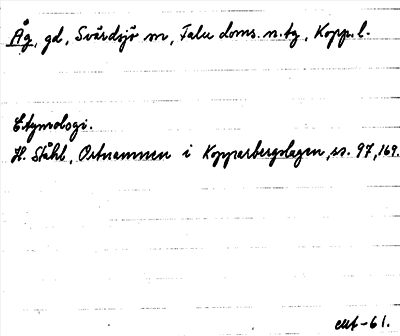 Åg, gd, Svärdsjö sn, Falu doms. n.tg, Kopp. l.
Etymologi.
H. Ståhl, Ortnamnen i Kopparbergslagen, ss. 97, 169.
-61.